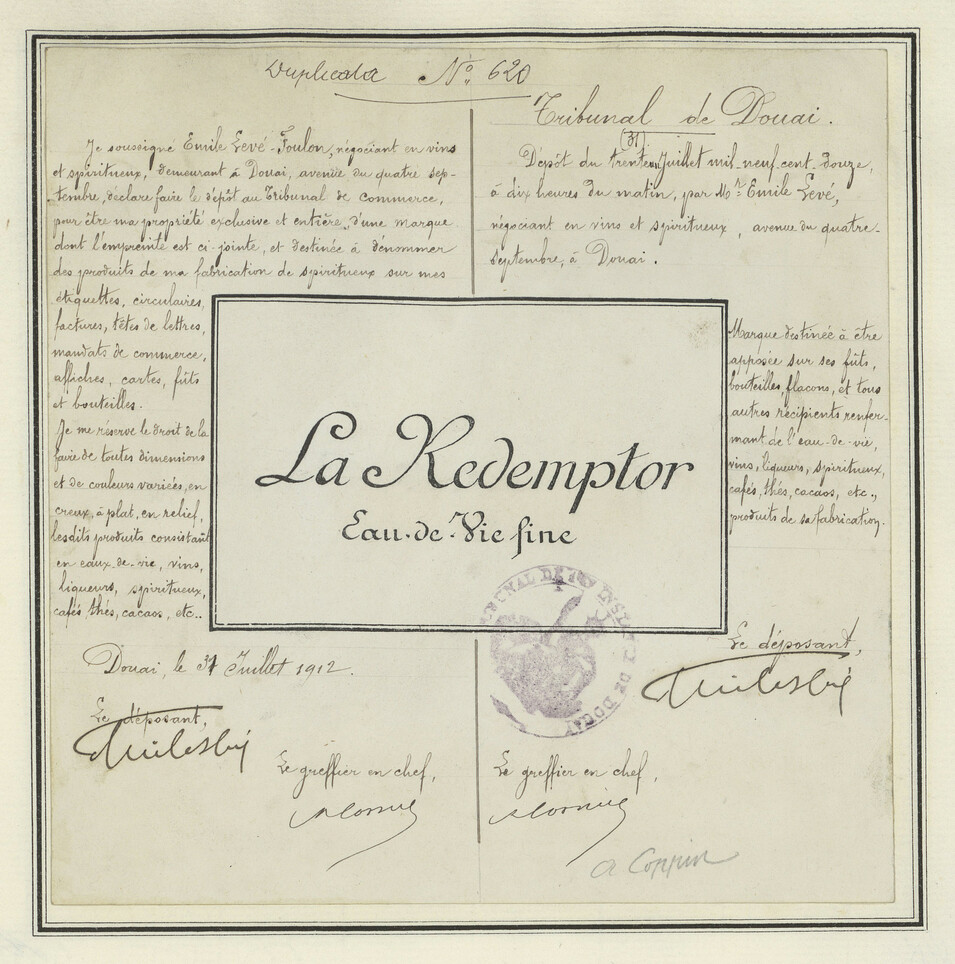 Duplicata No. 620
Je soussigné Emile Levé-Foulon, négociant en vins
et spiritueux, demeurant à Douai, avenue du quatre sep-
tembre, déclare faire le dépôt au Tribunal de commerce,
pour être ma propriété exclusive et entière, d'une marque
dont l'empreinte est ci-jointe, et destinée à dénommer
des produits de ma fabrication de spiritueux sur mes
étiquettes, circulaires,
factures, têtes de lettres,
mandats de commerce,
affiches, cartes, fûts
et bouteilles.
Je me réserve le droit de la
faire de toutes dimensions
et de couleurs variées, en
creux, à plat, en relief,
lesdits produits consistant
en eaux-de-vie, vins,
liqueurs, spiritueux,
cafés, thés, cacaos, etc..
Douai, le 31 Juillet 1912.
Le déposant,
Le greffier en chef,
La Redemptor
Eau-de-Vie fine
Tribunal de Douai.
(31)
Dépôt du trente un Juillet mil-neuf cent-douze,
à dix heures du matin, par Mr. Emile Levé,
négociant en vins et spiritueux, avenue du quatre-
septembre, à Douai.
Marque destinée à être
apposée sur ses fûts,
bouteilles, flacons, et tous
autres récipients renfer-
mant de l'eau-de-vie,
vins, liqueurs, spiritueux,
cafés, thés, cacaos, etc.,
produits de sa fabrication.
Le déposant,
Le greffier en chef,
a Coppin